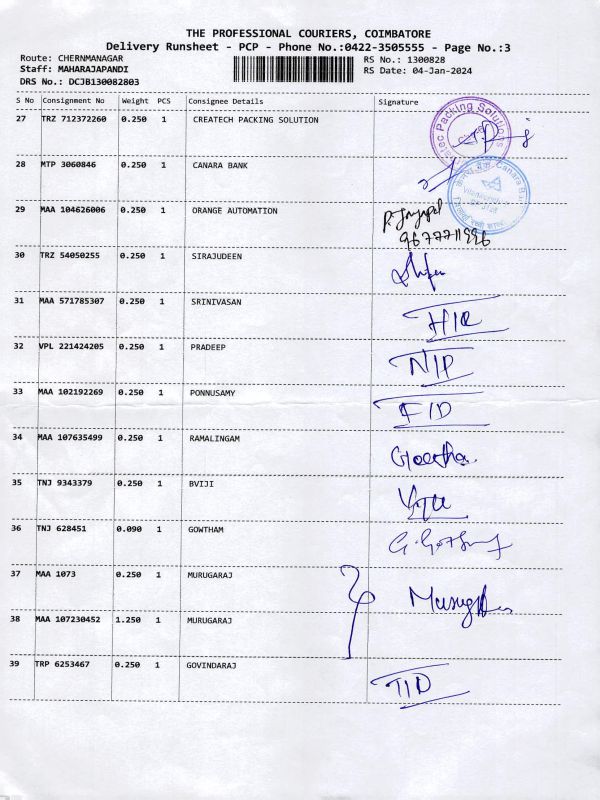 THE PROFESSIONAL COURIERS, COIMBATORE
Delivery Runsheet - PCP - Phone No.:0422-3505555 - Page No.:3
Route: CHERNMANAGAR RS No.: 1300828
Staff: MAHARAJAPANDI RS Date: 04-Jan-2024
DRS No.: DCJB130082803
S No Consignment No Weight PCS Consignee Details Signature
27 TRZ 712372260 0.250 1 CREATECH PACKING SOLUTION
28 MTP 3060846 0.250 1 CANARA BANK
29 MAA 104626006 0.250 1 ORANGE AUTOMATION
9677711996
30 TRZ 54050255 0.250 1 SIRAJUDEEN
31 MAA 571785307 0.250 1 SRINIVASAN
32 VPL 221424205 0.250 1 PRADEEP N/P
33 MAA 102192269 0.250 1 PONNUSAMY F/D
34 MAA 107635499 0.250 1 RAMALINGAM Geetha.
35 TNJ 9343379 0.250 1 BVIJI
36 TNJ 628451 0.090 1 GOWTHAM
37 MAA 1073 0.250 1 MURUGARAJ
38 MAA 107230452 1.250 1 MURUGARAJ
39 TRP 6253467 0.250 1 GOVINDARAJ T/D